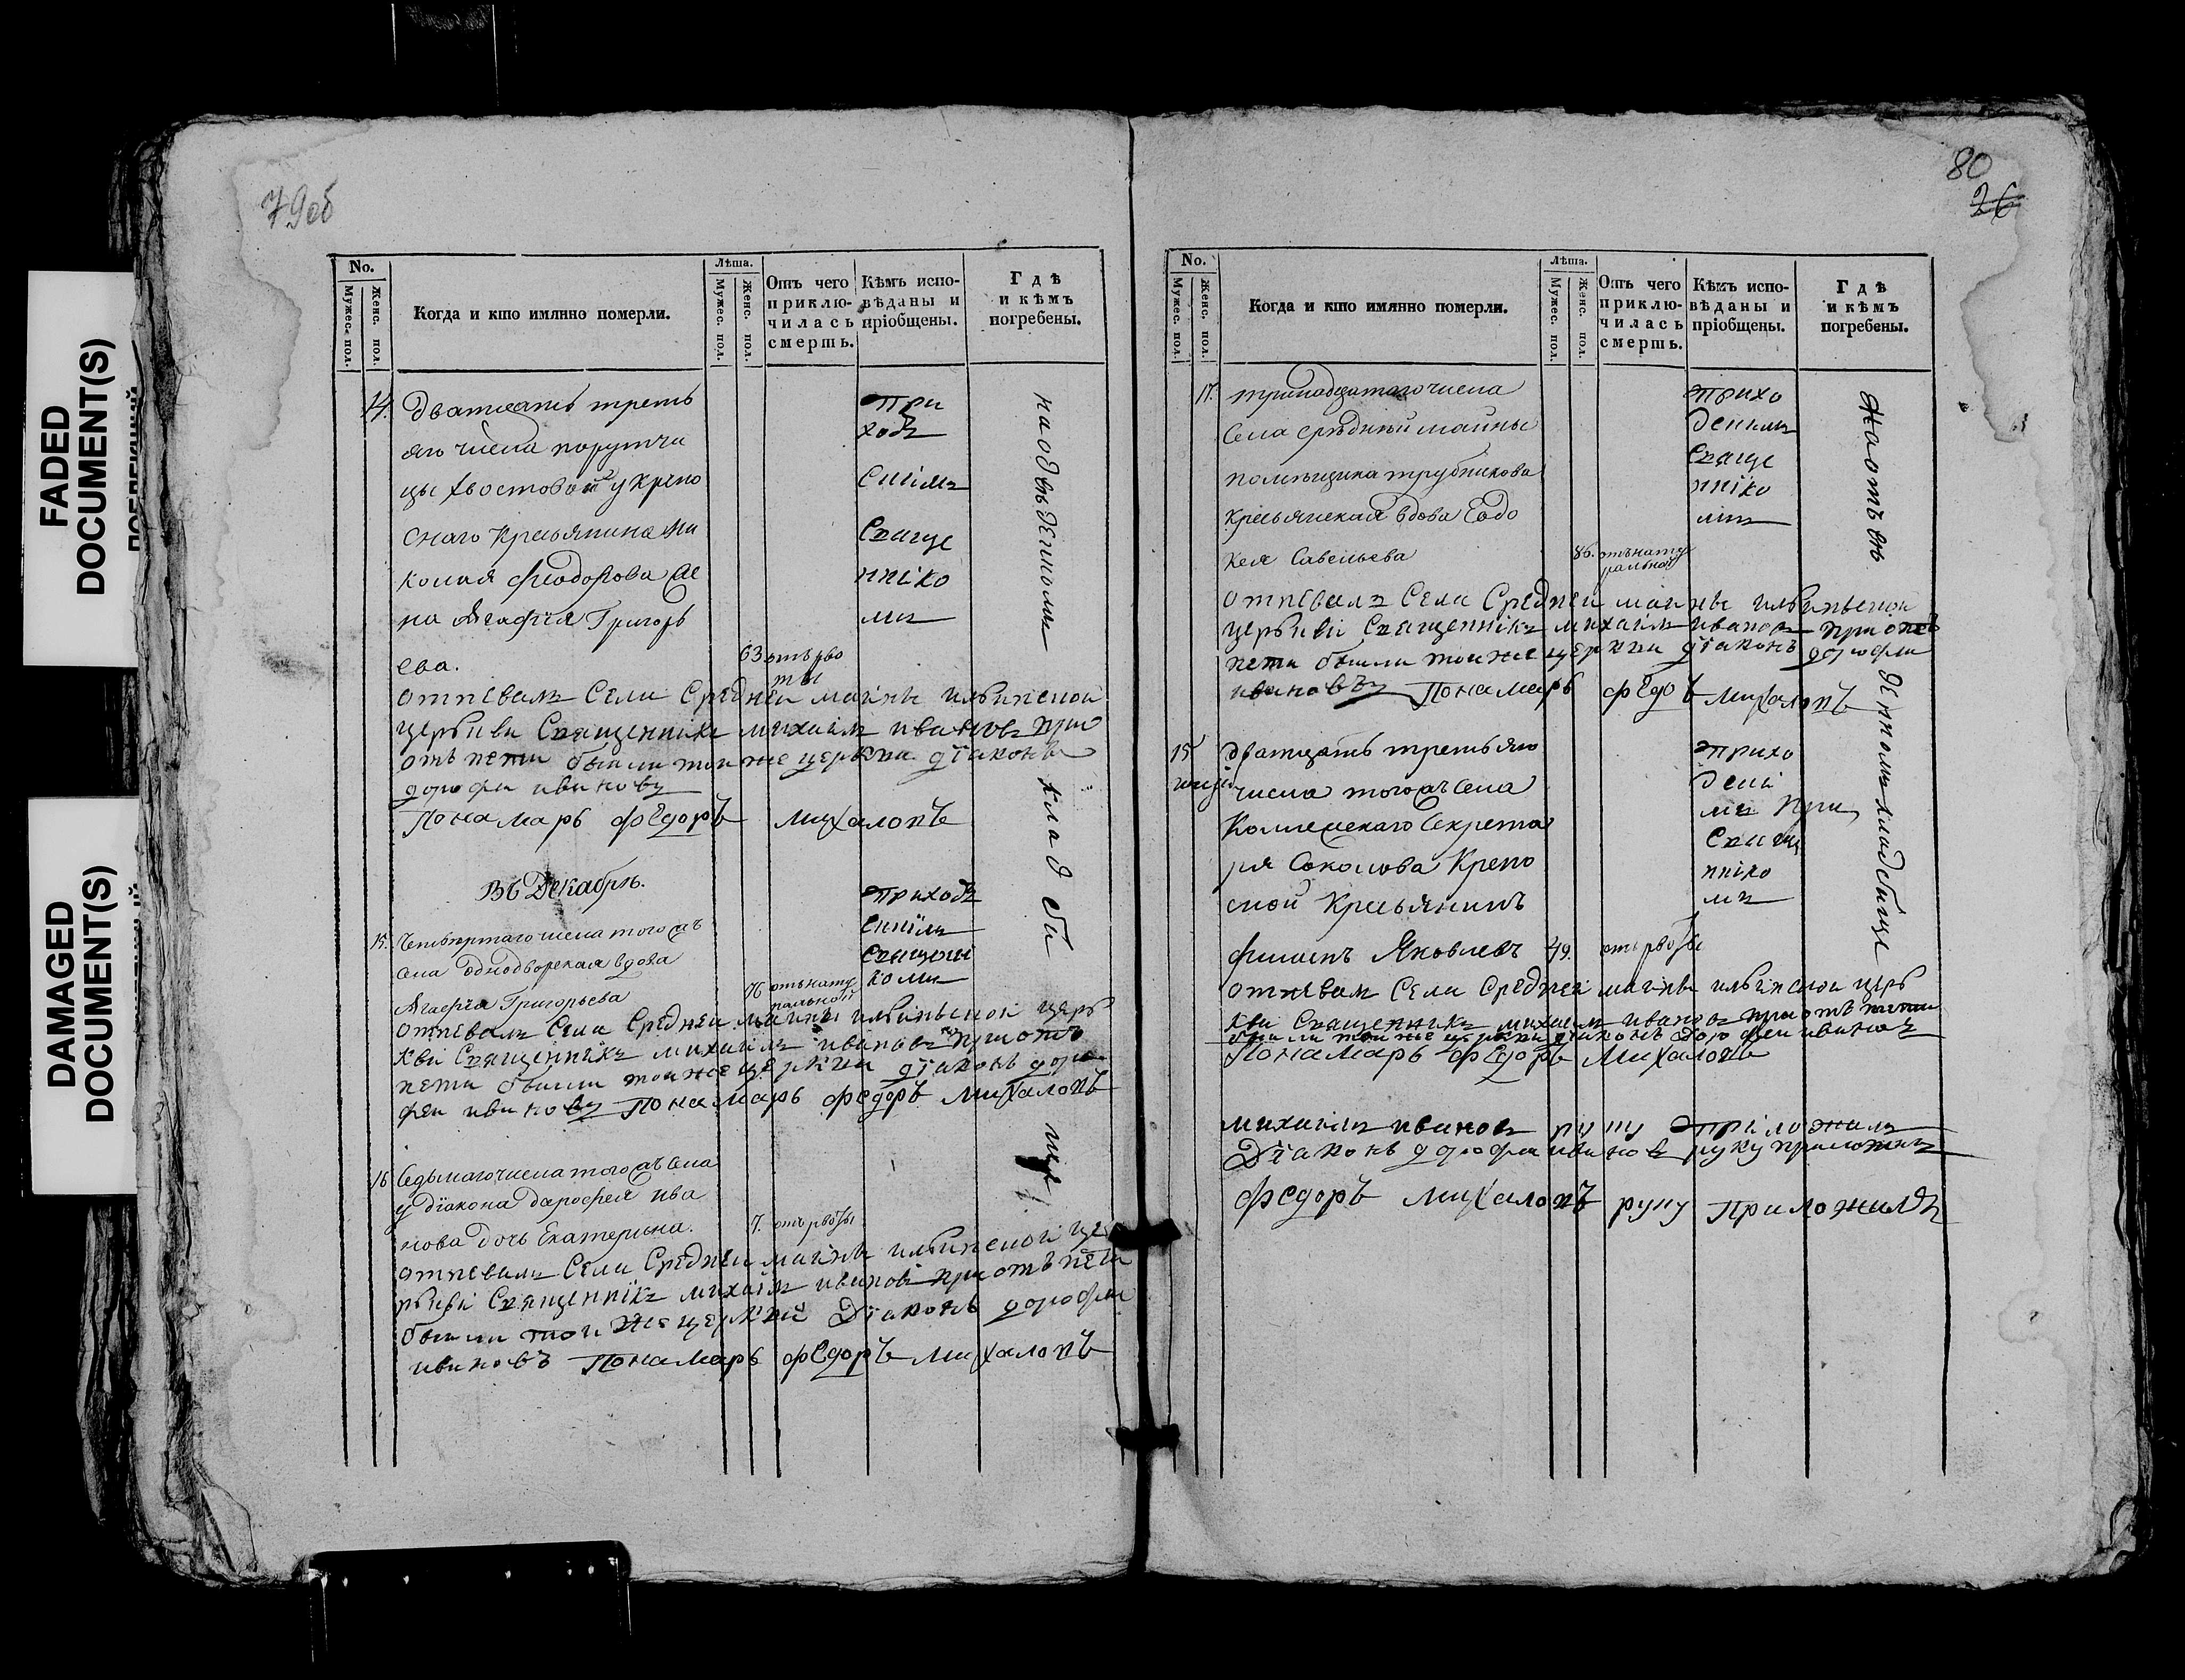 FADED
DOCUMENT(S)
DAMAGED
DOCUMENT(S)
79об
No.
Мужес. пол.
Женс. пол.
Когда и кто имянно померли.
Лѣта.
Мужес. пол.
Женс. пол.
Отъ чего
приклю-
чилась
смерть.
Кѣмъ испо-
вѣданы и
пріобщены.
Гдѣ
и кѣмъ
погребены.
14. дватцать треть
яго числа порутчи
цы Хвостовой укрепо
снаго крестьянина Ни
колая Федорова же
на Агафiя Григорь
ева. 63 отъ рво
ты
При
ходз
скимъ
Свяще
нніко
мъ
отпевалъ Села Средней маины ильинской
церькви Священникъ михаилъ ивановъ при
отъпети были тои же церькви дїаконъ
дорофеи ивановъ
Понамарь федоръ михаловъ
Въ Декабрѣ.
15. Четвертаго числа того жъ
села однодворская вдова
Агафїя Григорьева 76 отъ нату
ральной
приходз
скимъ
Священни
комъ
отпевалъ Села Средней маины ильинской церь
кви Священникъ михаилъ ивановъ при отъ
пети были тои же церькви дїаконъ доро
феи ивановъ Понамарь федоръ михаловъ
16 Седьмаго числа того жъ села
у дїакона дарофея ива
нова дочь Екатерина. 7. отъ рвоты
отпевалъ Села Средней маины ильинской це
рькви Священникъ михаилъ ивановъ при отъпети
были тои же церькви Дїаконъ дорофеи
ивановъ Понамарь федоръ михаловъ
на отведенномъ кладби щѣ
80
26
No.
Мужес. пол.
Женс. пол.
Когда и кто имянно померли.
Лѣта.
Мужес. пол.
Женс. пол.
Отъ чего
приклю-
чилась
смерть.
Кѣмъ испо-
вѣданы и
пріобщены.
Гдѣ
и кѣмъ
погребены.
17. тринадцатаго числа
Села средней маины
помещика трубникова
крестьянская вдова Евдо
кея Савельева 86. отъ нату
ральной
прихо
дскимъ
Свяще
нніко
мъ
отпевалъ Села Средней маины ильинской
церькви Священникъ михаилъ ивановъ при отъ
пети были тои же церькви дїаконъ дорофеи
ивановъ Понамарь федоръ михаловъ
15 дватцать третьяго
числа того жъ села
Коллежскаго Секрета
ря Соколова Крепо
сной Крестьянинъ
Филипъ Яковлевъ 49. отъ рвоты
прихо
дскі
мъ
Свяще
нніко
мъ
отпевалъ Села Средней маины ильинской церь
кви Священникъ михаилъ ивановъ при отъ пети
были тои же церькви дїаконъ дорофеи ивановъ
Понамарь федоръ михаловъ
На отведенномъ кладбище
михаилъ ивановъ руку приложилъ
Дїаконъ дорофеи ивановъ руку приложилъ
федоръ михаловъ руку приложилъ